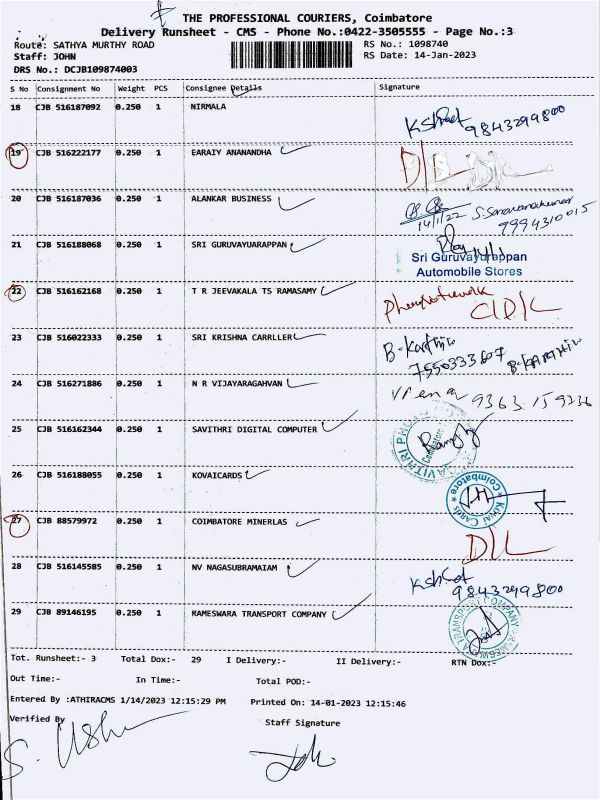 THE PROFESSIONAL COURIERS, Coimbatore
Delivery Runsheet - CMS - Phone No.:0422-3505555 - Page No.:3
Route: SATHYA MURTHY ROAD RS No.: 1098740
Staff: JOHN RS Date: 14-Jan-2023
DRS No.: DCJB109874003
S No Consignment No Weight PCS Consignee Details Signature
18 CJB 516187092 0.250 1 NIRMALA
9843299800
19 CJB 516222177 0.250 1 EARAIY ANANANDHA D/L
20 CJB 516187036 0.250 1 ALANKAR BUSINESS
14/1/22 S. Saravanakumar
9994310015
21 CJB 516188068 0.250 1 SRI GURUVAYUARAPPAN
Sri Guruvayurappan
Automobile Stores
22 CJB 516162168 0.250 1 T R JEEVAKALA TS RAMASAMY
23 CJB 516022333 0.250 1 SRI KRISHNA CARRLLER B-Karthik
7550333607 B-KARTHIK
24 CJB 516271886 0.250 1 N R VIJAYARAGAHVAN
9363 159236
25 CJB 516162344 0.250 1 SAVITHRI DIGITAL COMPUTER
26 CJB 516188055 0.250 1 KOVAICARDS
Coimbatore
Kovai Cards
27 CJB 88579972 0.250 1 COIMBATORE MINERLAS
D/L
28 CJB 516145585 0.250 1 NV NAGASUBRAMAIAM
9843299800
29 CJB 89146195 0.250 1 RAMESWARA TRANSPORT COMPANY
TRANSPORT COMPANY
Tot. Runsheet:- 3 Total Dox:- 29 I Delivery:- II Delivery:- RTN Dox:-
Out Time:- In Time:- Total POD:-
Entered By :ATHIRACMS 1/14/2023 12:15:29 PM Printed On: 14-01-2023 12:15:46
Verified By Staff Signature
S. Usha